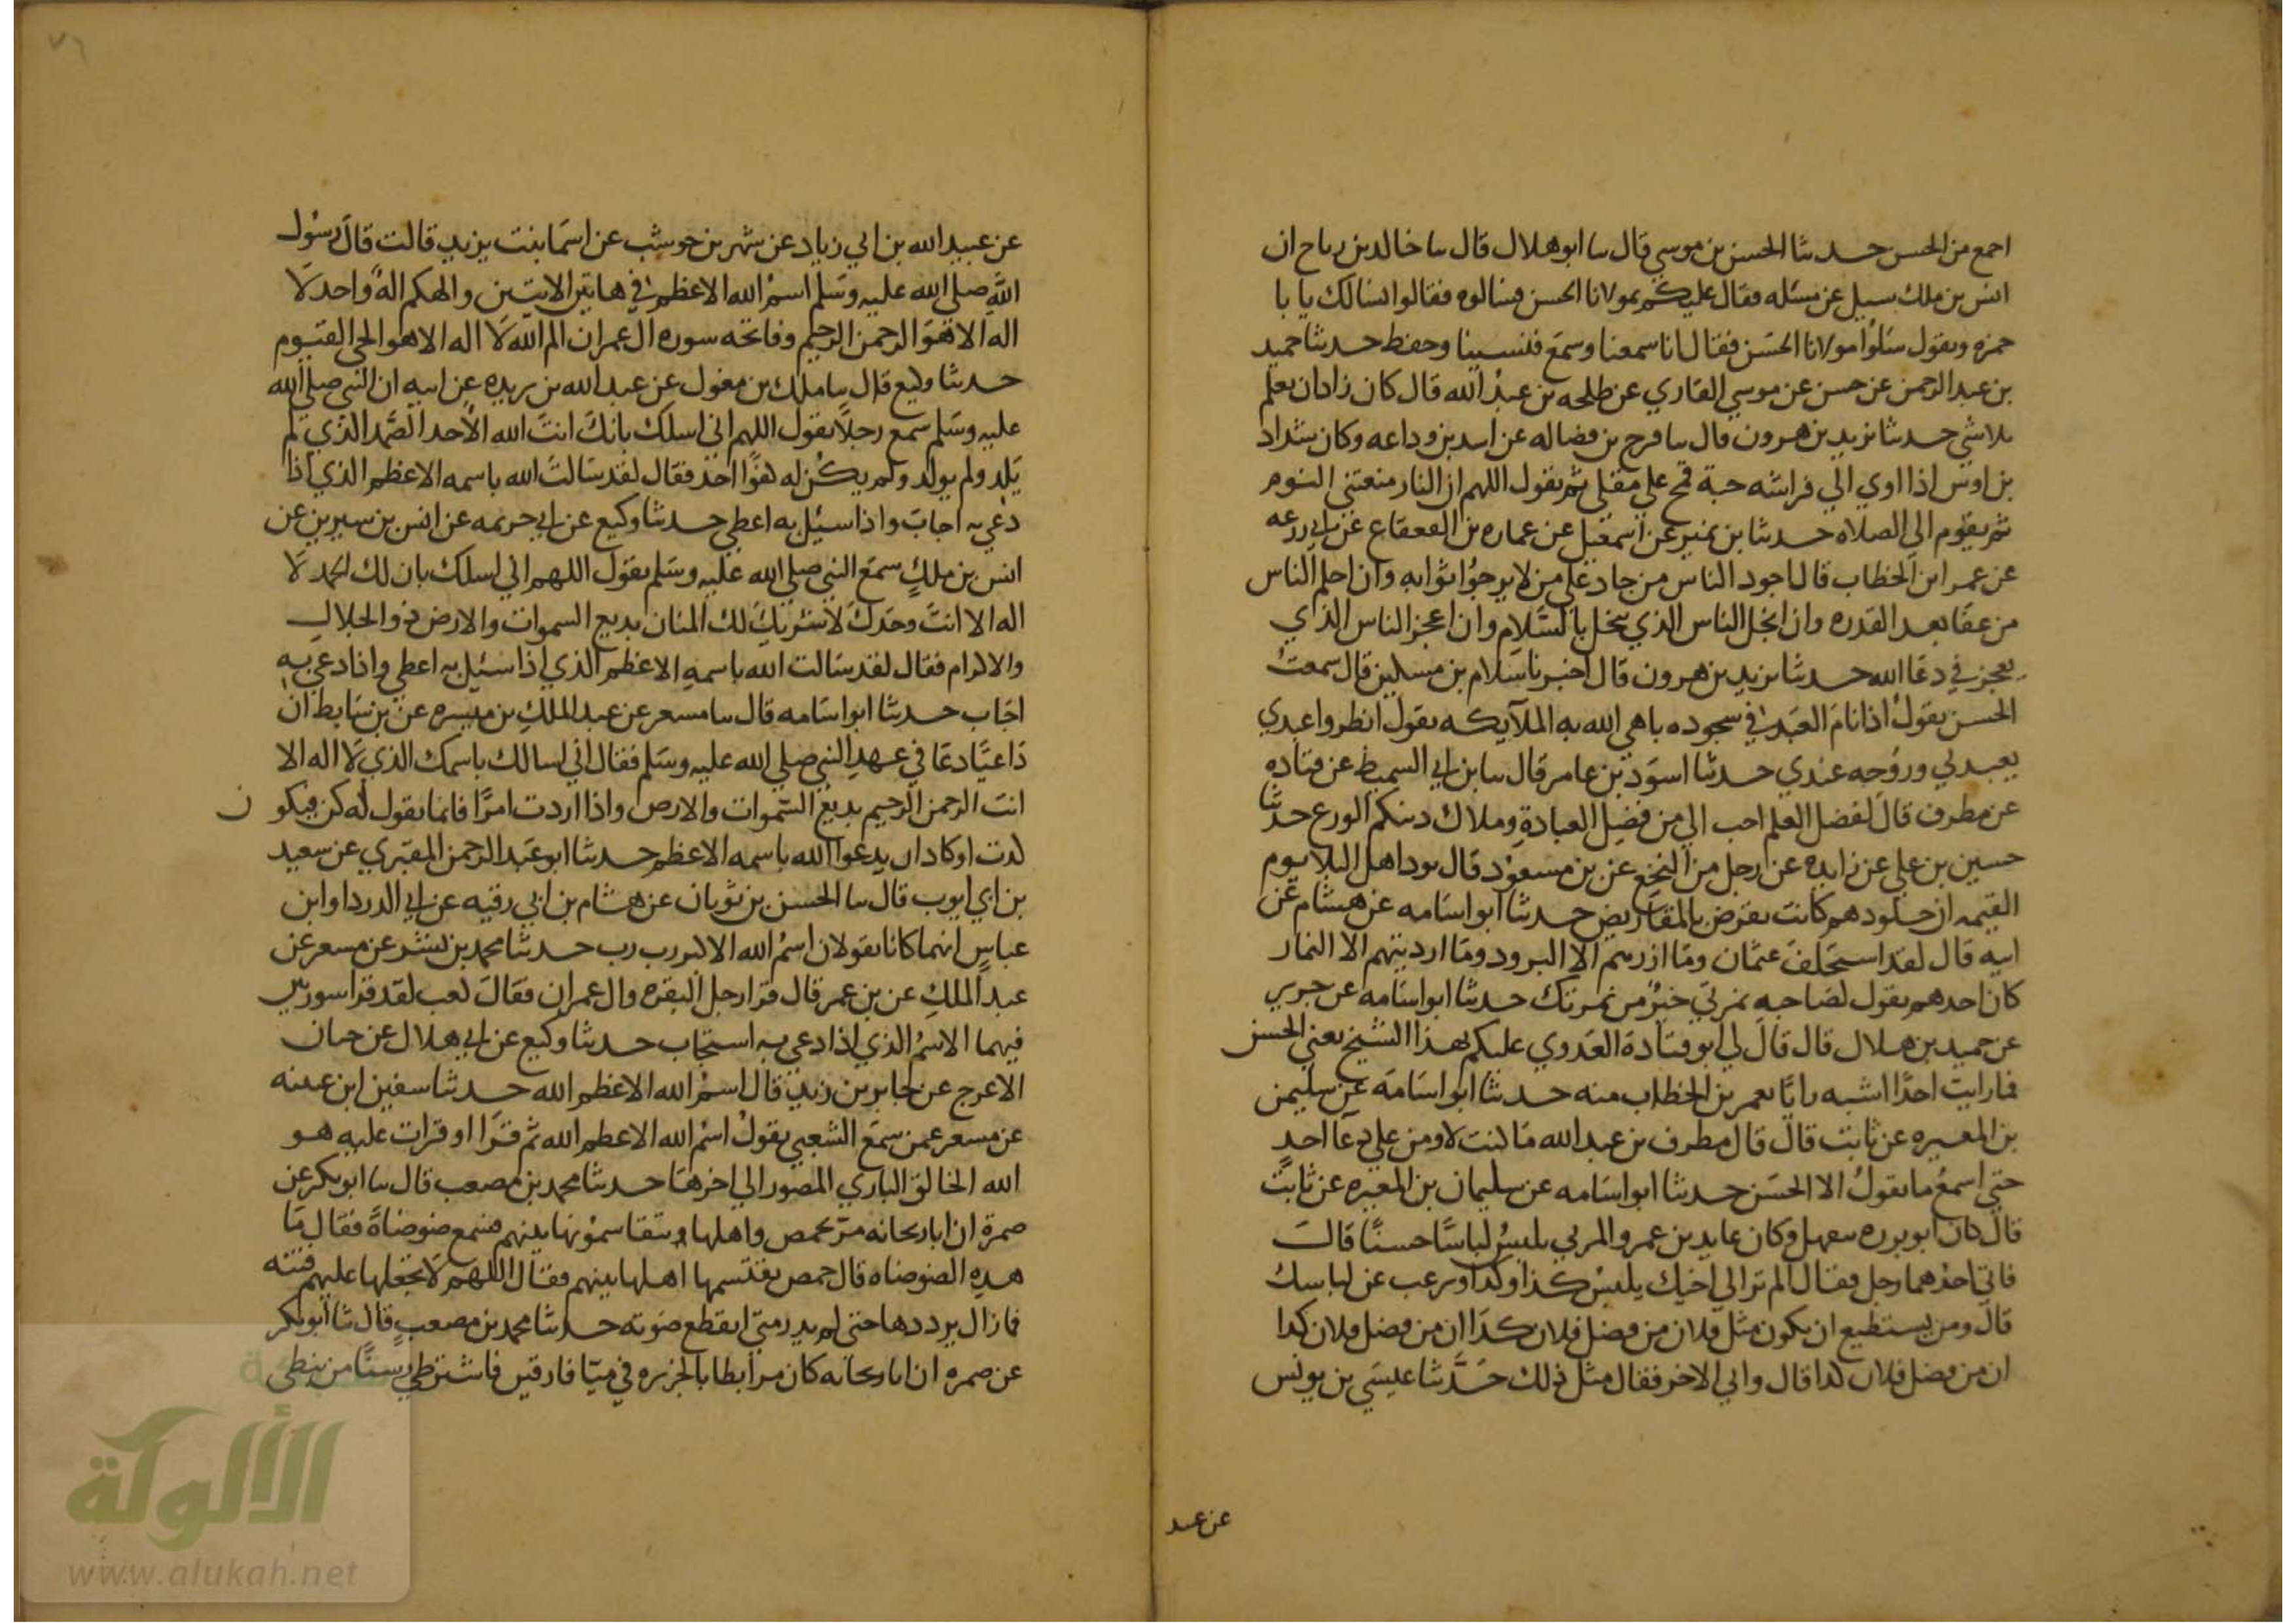 اجمع من الحسن حدثنا الحسن بن موسي قال سا ابو هلال قال سا خالد بن رباح ان
انس بن ملك سيل عن مسئله فقال عليكم بمولانا الحسن فسالوه فقالوا نسالك يا با
حمزه وتقول سلوا مولانا الحسن فقال انا سمعنا وسمع فنسينا وحفظ حدثنا حميد
بن عبد الرحمن عن حسن عن موسي القاري عن طلحه بن عبد الله قال كان زادان يعلم
بلا شي حدثنا يزيد بن هرون قال سا فرج بن فضاله عن اسد بن وداعه وكان شداد
بن اوس اذا اوي الي فراشه حبة قمح علي مقلي ثم يقول اللهم ان النار منعتني النوم
ثم يقوم الي الصلاه حدثنا بن نمير عن اسمعيل عن عماره بن القعقاع عن ابي زرعه
عن عمر ابن الخطاب قال اجود الناس من جاد علي من لا يرجوا ثوابه وان احلم الناس
من عفا بعد القدره وان ابخل الناس الذي يبخل بالسلام وان اعجز الناس الذي
يعجز في دعا الله حدثنا يزيد بن هرون قال اخبرنا سلام بن مسكين قال سمعت
الحسن يقول اذا نام العبد في سجوده باهي الله به الملآيكه يقول انظروا عبدي
يعبدني وروحه عندي حدثنا اسود بن عامر قال سا بن ابي السميط عن قتاده
عن مطرف قال لفضل العلم احب الي من فضل العبادة وملاك دينكم الورع حدثنا
حسين بن علي عن زايده عن رجل من النخع عن بن مسعود قال يود اهل البلا يوم
القيمه ان جلودهم كانت تقرض بالمقاريض حدثنا ابو اسامه عن هشام عن
ابيه قال لقد استخلف عثمان وما ازرهم الا البرود وما ارديتهم الا النمار
كان احدهم يقول لصاحبه نمرتي خير من نمرتك حدثنا ابو اسامه عن جرير
عن حميد بن هلال قال قال لي ابو قتادة العدوي عليكم بهذا الشيخ يعني الحسن
فما رايت احدا اشبه رايا بعمر بن الخطاب منه حدثنا ابو اسامه عن سليمن
بن المغيره عن ثابت قال قال مطرف بن عبد الله ما كنت لاومن علي دعا احد
حتي اسمع ما يقول الا الحسن حدثنا ابو اسامه عن سليمان بن المغيره عن ثابت
قال كان ابو برزه يتقهل وكان عايد بن عمرو المزني يلبس لباسا حسنا قال
فاتي احدهما رجل فقال الم تر الي اخيك يلبس كذا وكذا ويرغب عن لباسك
قال ومن يستطيع ان يكون مثل فلان من فضل فلان كذا ان من فضل فلان كذا
ان من فضل فلان كذا قال واتي الاخر فقال مثل ذلك حدثنا عيسي بن يونس
عن عبد
٧٦
عن عبيد الله بن ابي زياد عن شهر بن حوشب عن اسما بنت يزيد قالت قال رسول
الله صلي الله عليه وسلم اسم الله الاعظم في هاتين الايتين والهكم اله واحد لا
اله الا هو الرحمن الرحيم وفاتحه سوره ال عمران الم الله لا اله الا هو الحي القيوم
حدثنا وكيع قال سا ملك بن مغول عن عبد الله بن بريده عن ابيه ان النبي صلي الله
عليه وسلم سمع رجلا يقول اللهم اني اسلك بانك انت الله الاحد الصمد الذي لم
يلد ولم يولد ولم يكن له كفوا احد فقال لقد سالت الله باسمه الاعظم الذي اذا
دعي به اجاب واذا سيل به اعطي حدثنا وكيع عن ابي خزيمه عن انس بن سيرين عن
انس بن ملك سمع النبي صلي الله عليه وسلم يقول اللهم اني اسلك بان لك الحمد لا
اله الا انت وحدك لا شريك لك المنان بديع السموات والارض ذو الجلال
والاكرام فقال لقد سالت الله باسمه الاعظم الذي اذا سئل به اعطي واذا دعي به
اجاب حدثنا ابو اسامه قال سا مسعر عن عبد الملك بن ميسره عن بن سابط ان
داعيا دعا في عهد النبي صلي الله عليه وسلم فقال اني اسالك باسمك الذي لا اله الا
انت الرحمن الرحيم بديع السموات والارض واذا اردت امرا فانما تقول له كن فيكون
لدت او كاد ان يدعوا الله باسمه الاعظم حدثنا ابو عبد الرحمن المقبري عن سعيد
بن ابي ايوب قال سا الحسن بن ثوبان عن هشام بن ابي رقيه عن ابي الدردا وابن
عباس انهما كانا يقولان اسم الله الاكبر رب رب حدثنا محمد بن بشر عن مسعر عن
عبد الملك عن بن عمر قال قرا رجل البقره وال عمران فقال كعب لقد قرا سورتين
فيهما الاسم الذي اذا دعي به استجاب حدثنا وكيع عن ابي هلال عن حيان
الاعرج عن جابر بن زيد قال اسم الله الاعظم الله حدثنا سفين ابن عيينه
عن مسعر عمن سمع الشعبي يقول اسم الله الاعظم الله ثم قرا او قرات عليه هو
الله الخالق الباري المصور الي اخرها حدثنا محمد بن مصعب قال سا ابو بكر عن
ضمرة ان ابا ريحانه مر بحمص واهلها يتقاسمونها بينهم فسمع ضوضاة فقال ما
هذه الضوضاه قال حمص يقتسمها اهلها بينهم فقال اللهم لا تجعلها عليهم فتنه
فما زال يرددها حتي لم يدر متي انقطع صوته حدثنا محمد بن مصعب قال ثنا ابو بكر
عن ضمره ان ابا ريحانه كان مرابطا بالجزيره في ميا فارقين فاشتري رسنا من نبطي
الألوكة
www.alukah.net